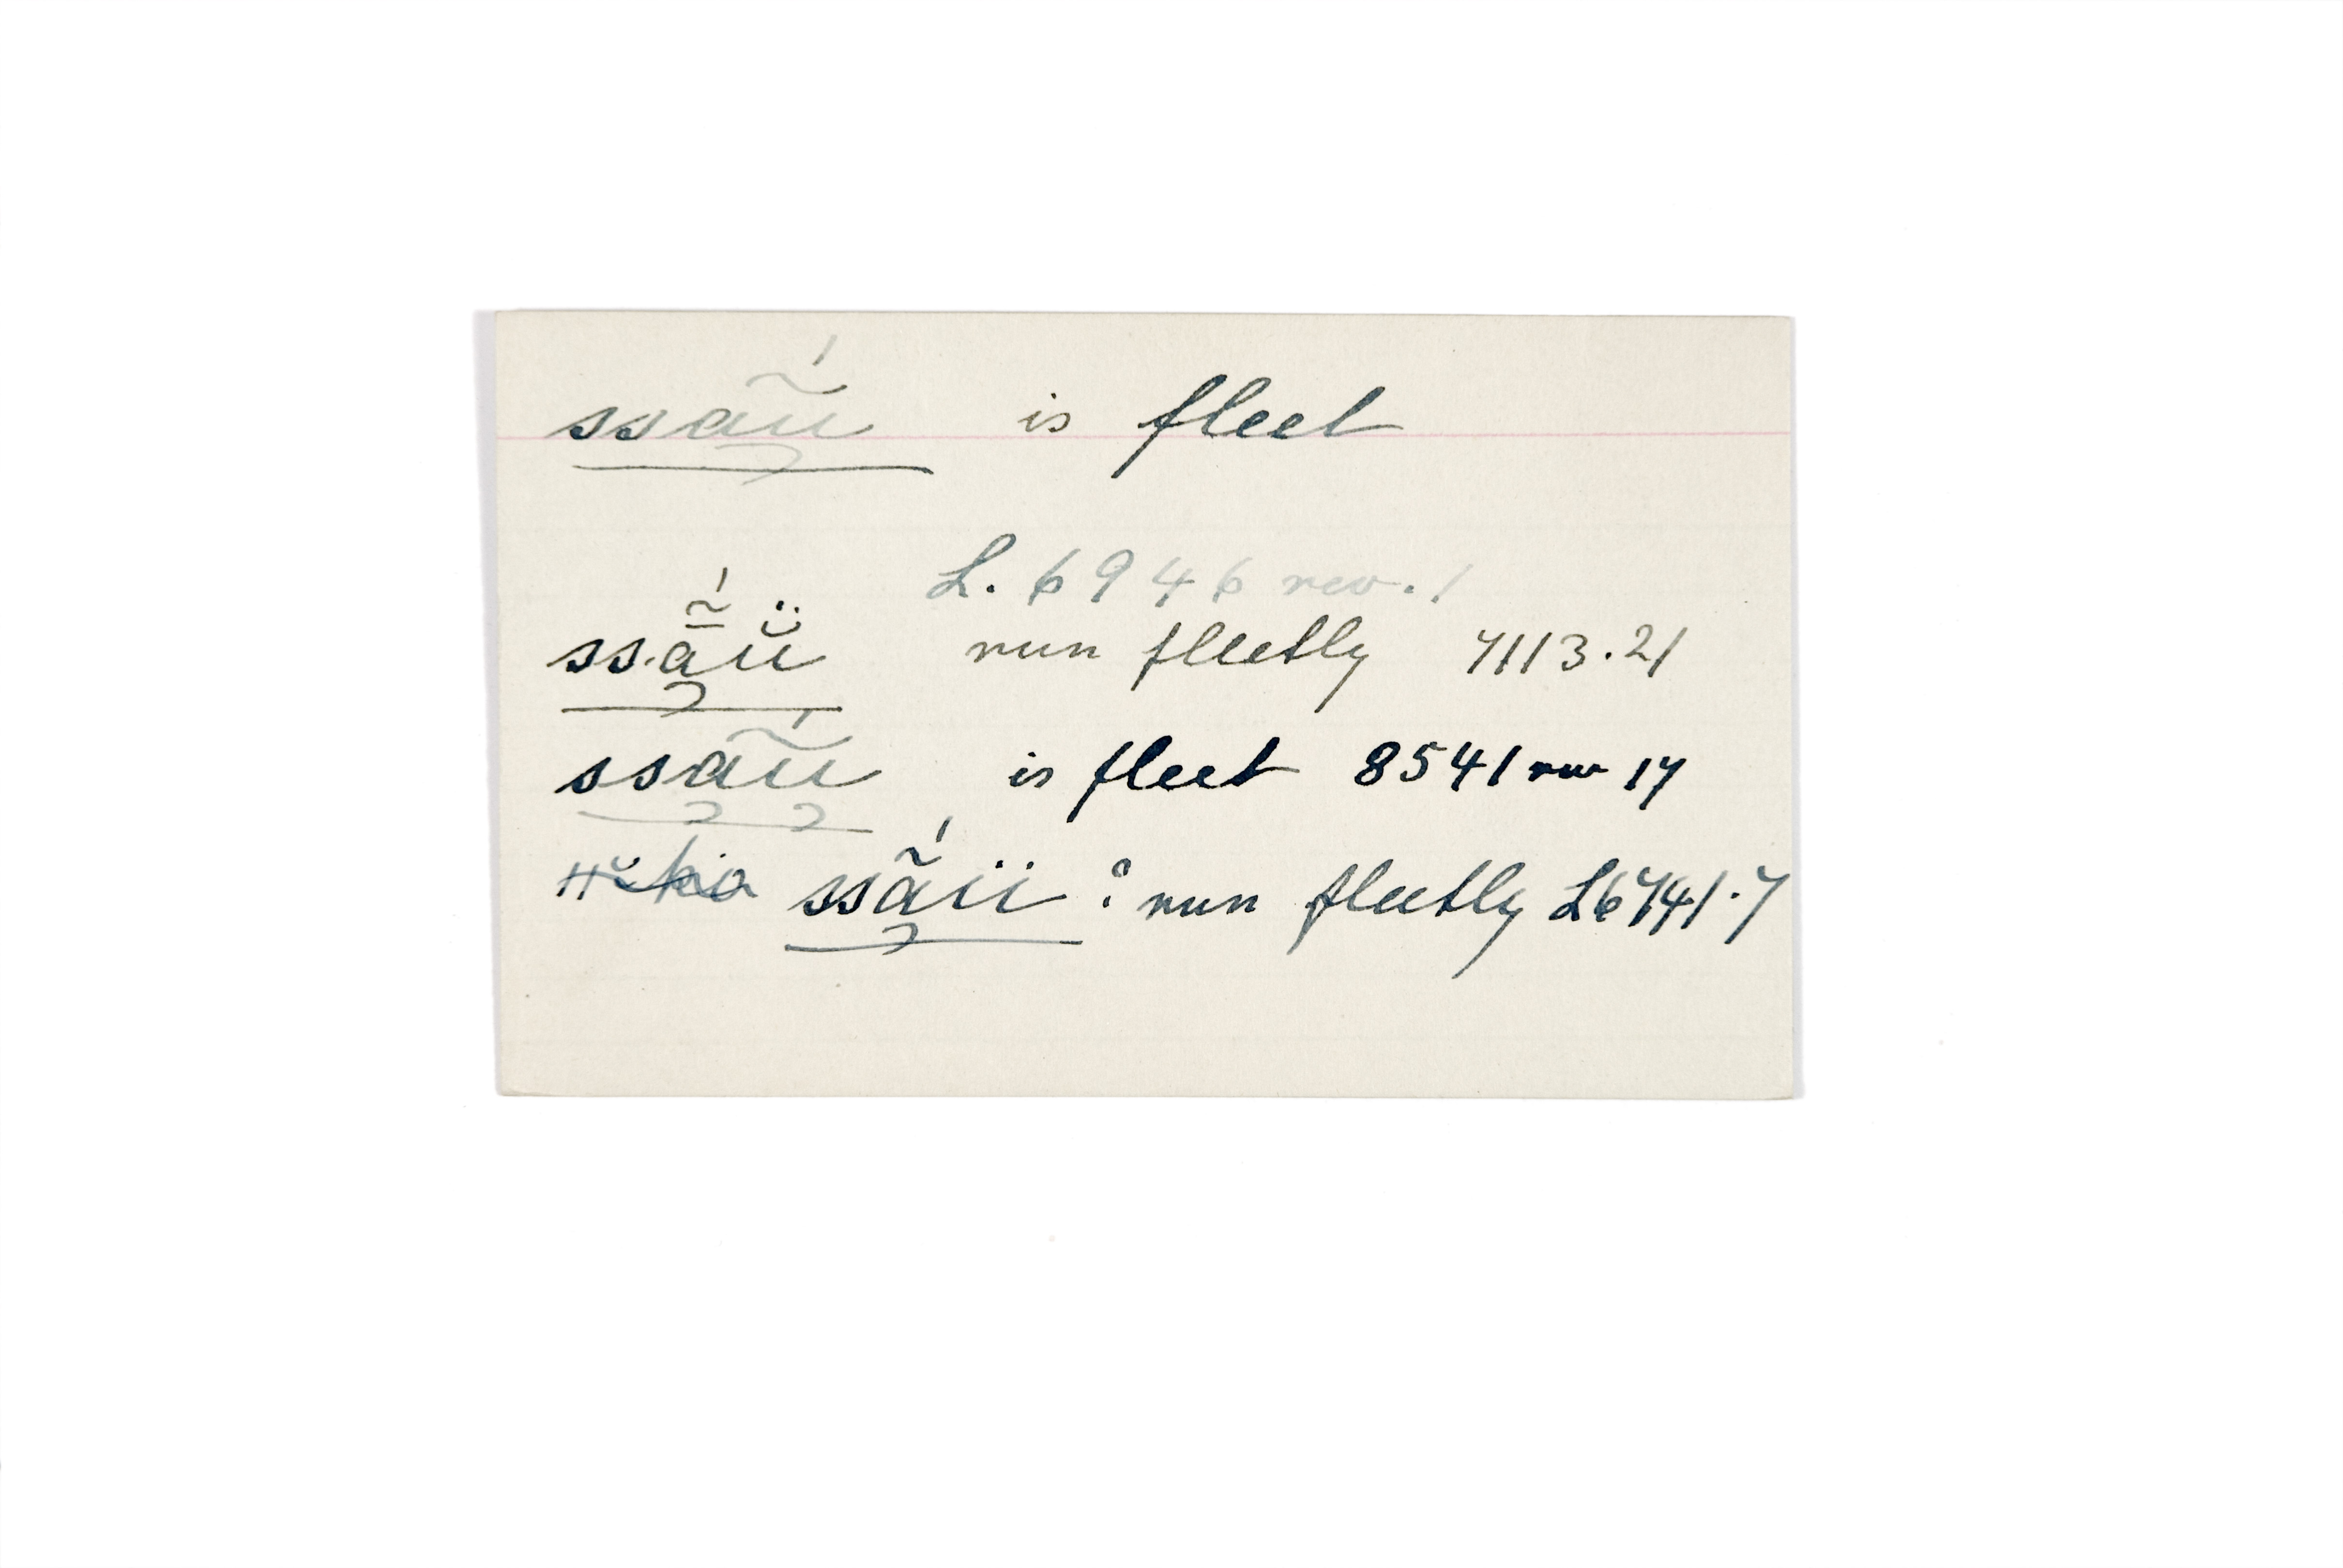 ssa͠ú is fleet
L. 6946 rev. 1
ss·ã̄́ṳ̈ run fleetly 7113.21
ssa͠ú is fleet 8541 rev 17
ssã́ii : run fleetly L6741.7